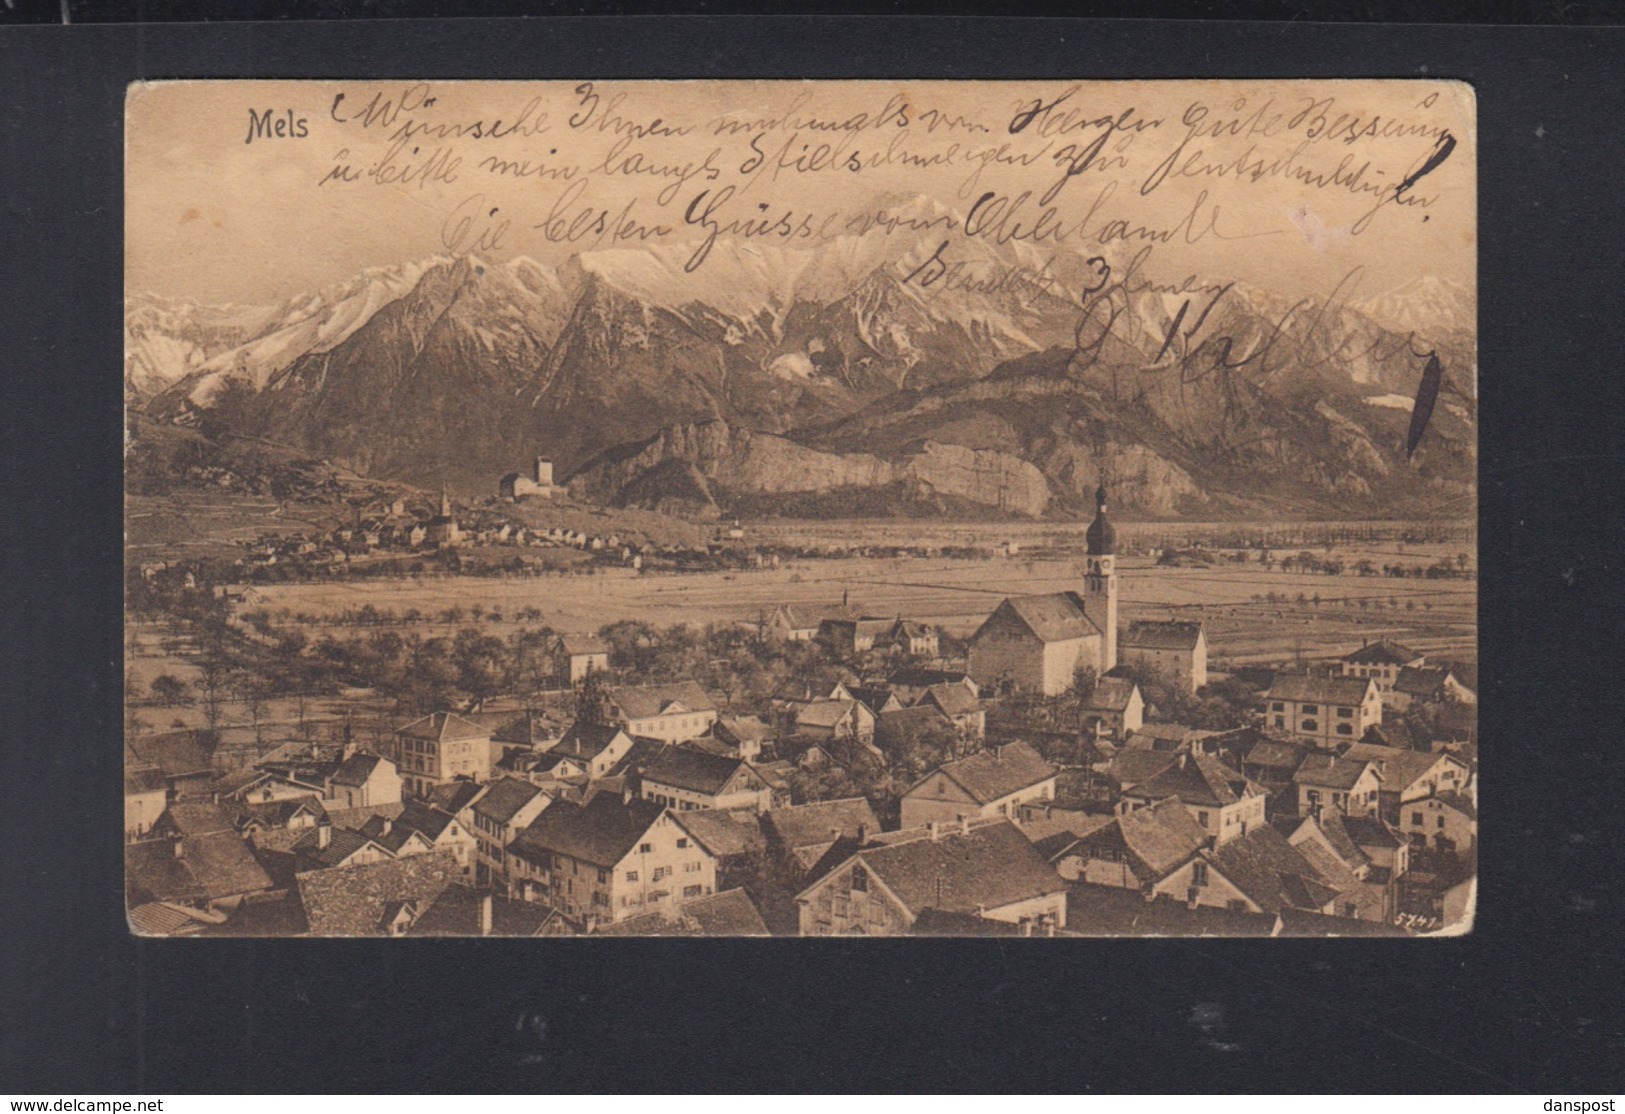 Mels
Wünsche Ihnen nochmals von Herzen gute Besserung
u. bitte mein langes Stillschweigen zu entschuldigen.
Die besten Grüsse vom Oberland
sendet Ihnen
5741
www.delcampe.net
danspost